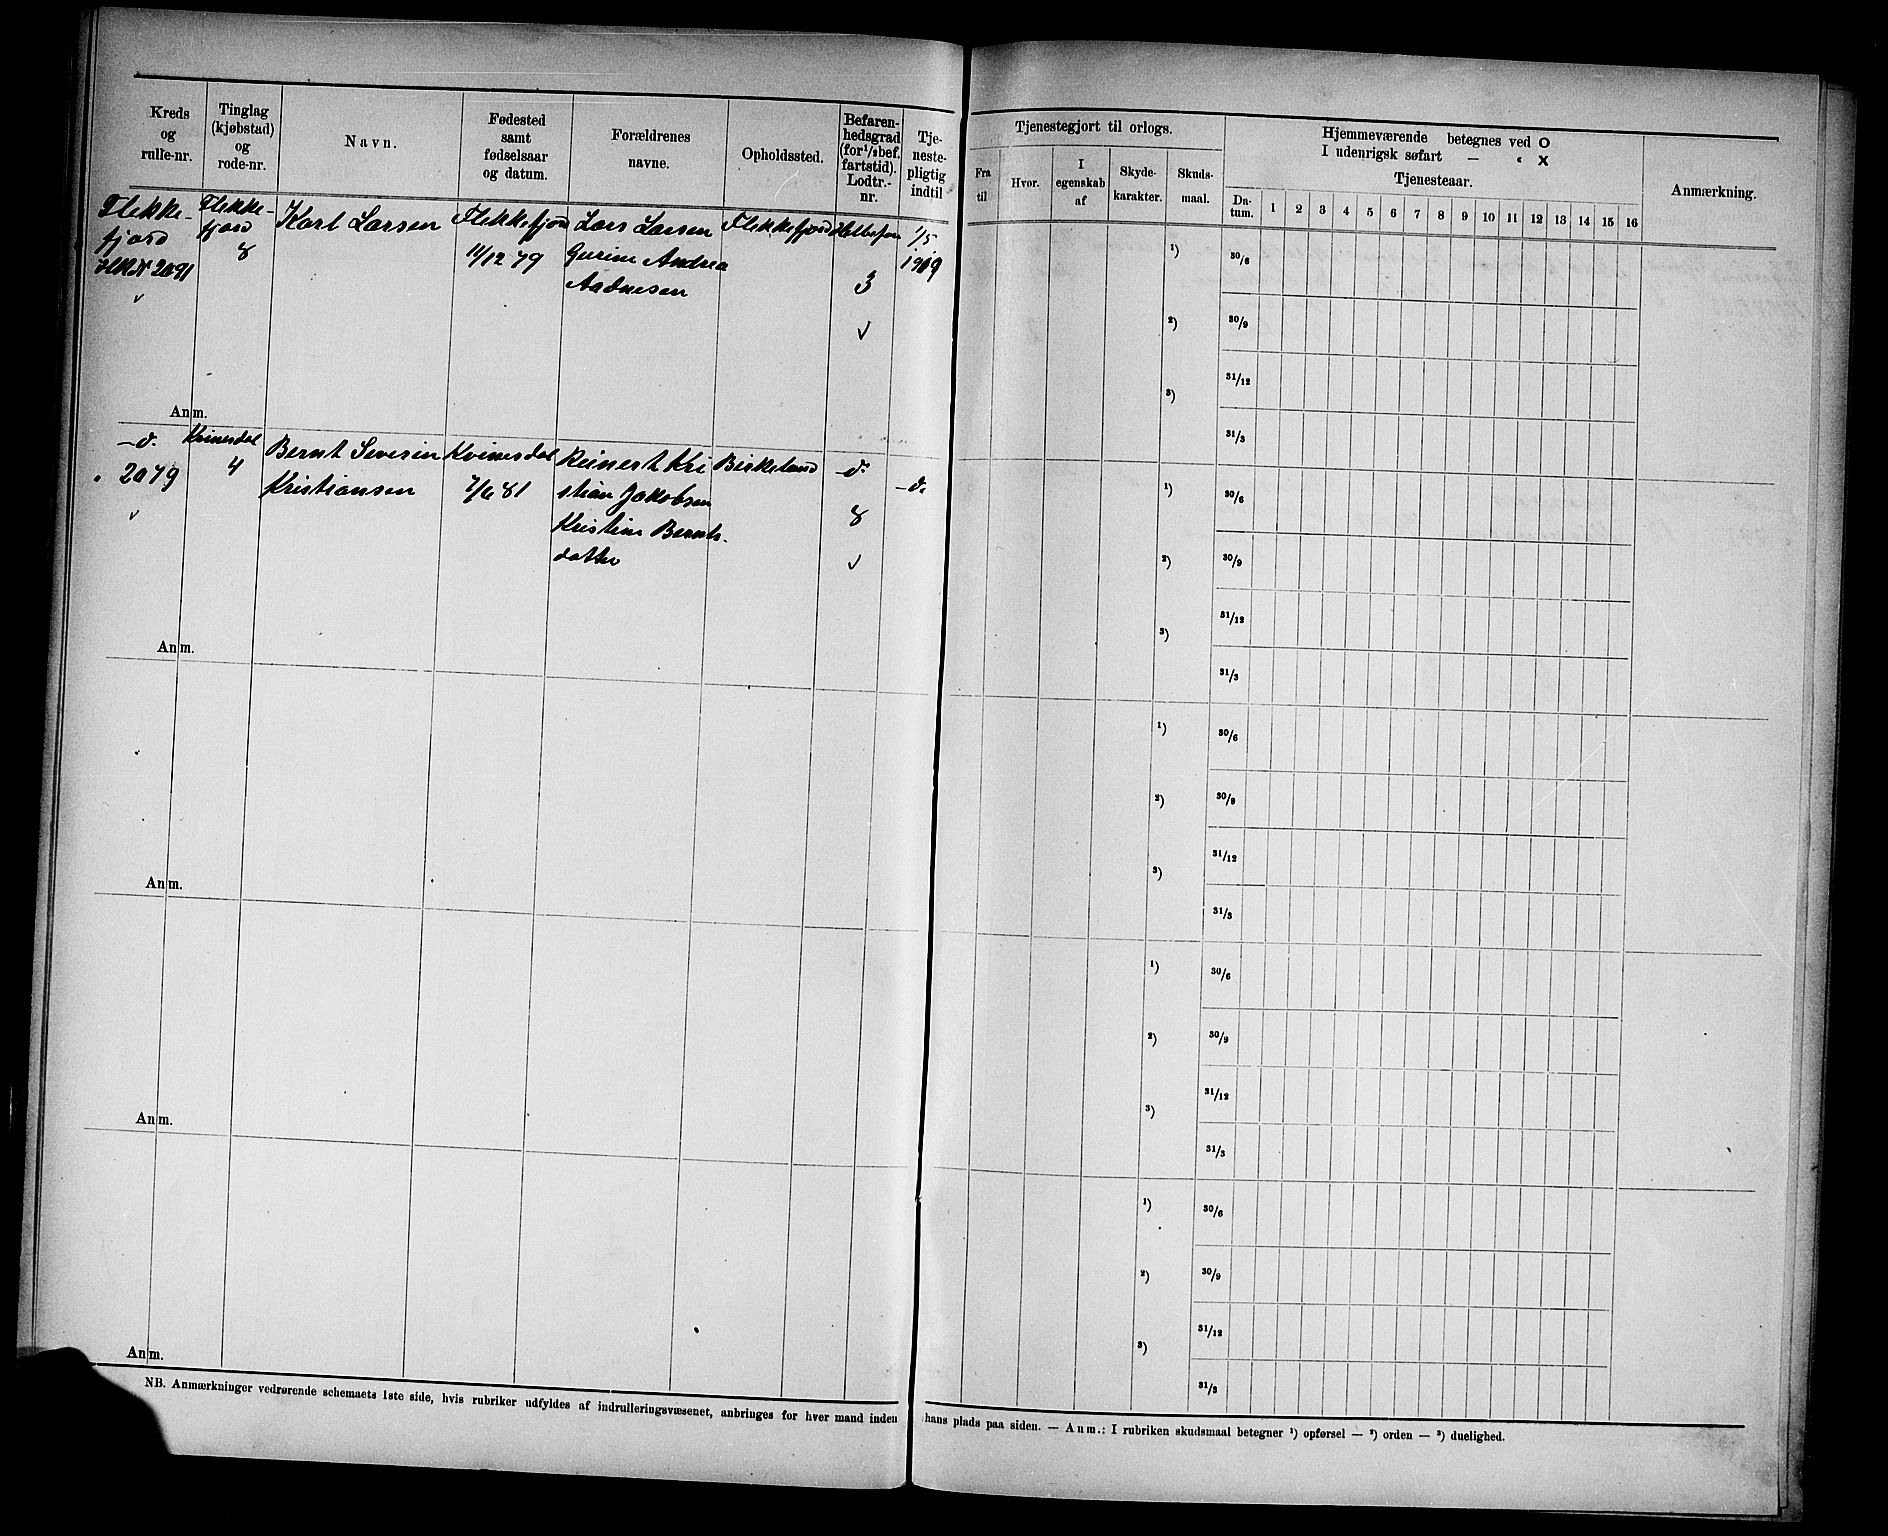 Kreds og rulle-nr.
Tinglag (kjøbstad) og rode-nr.
Navn.
Fødested samt fødselsaar og datum.
Forældrenes navne.
Opholdssted.
Befarenhedsgrad (for ¹/₂bef. fartstid). Lodtr.-nr.
Tjenestepligtig indtil
Tjenestegjort til orlogs.
Fra til
Hvor.
I egenskab af
Skydekarakter.
Skudsmaal.
Hjemmeværende betegnes ved O
I udenrigsk søfart — " X
Tjenesteaar.
Datum. 1 2 3 4 5 6 7 8 9 10 11 12 13 14 15 16
Anmærkning.
Flekke-
fjord
2091
Flekke-
fjord
8
Karl Larsen
Flekkefjord
11/12 79
Lars Larsen
Gurine Andrea
Aadnesen
Flekkefjord
3
1/5
1919
Anm.
¹) ²) ³)
30/6
30/9
31/12
31/3
-d.
" 2079
Kvinesdal
4
Bernt Severin
Kristiansen
Kvinesdal
7/6 81
Reinert Kri
stian Jakobsen
Kristine Bernts-
datter
Birkeland
-d.
8
-d.
Anm.
¹) ²) ³)
30/6
30/9
31/12
31/3
Anm.
¹) ²) ³)
30/6
30/9
31/12
31/3
Anm.
¹) ²) ³)
30/6
30/9
31/12
31/3
Anm.
¹) ²) ³)
30/6
30/9
31/12
31/3
NB. Anmærkninger vedrørende schemaets 1ste side, hvis rubriker udfyldes af indrulleringsvæsenet, anbringes for hver mand inden hans plads paa siden. — Anm.: I rubriken skudsmaal betegner ¹) opførsel — ²) orden — ³) duelighed.